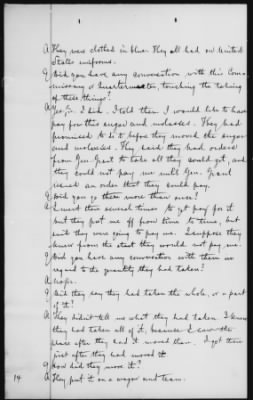 A They were clothed in blue. They all had on United
States uniforms.
Q Did you have any conversation with this Com-
missary or Quartermaster, touching the taking
of these things?
A Yes Sir. I did. I told them I would like to have
pay for this sugar and molasses. They had
promised to do it before they moved the sugar
and molasses. They said they had orders
from Gen Grant to take all they could get, and
they could not pay me until Gen. Grant
issued an order that they could pay.
Q Did you go there more than once?
A I went there several times to get pay for it
but they put me off from time to time, but
said they were going to pay me. I suppose they
knew from the start they would not pay me.
Q Did you have any conversation with them in
regard to the quantity they had taken?
A
Q Did they say they had taken the whole, or a part
of it?
A They didn't tell me what they had taken. I know
they had taken all of it, because I saw the
place after they had it moved there. I got there
just after they had moved it
Q How did they move it?
A They put it on a wagon and team.
14